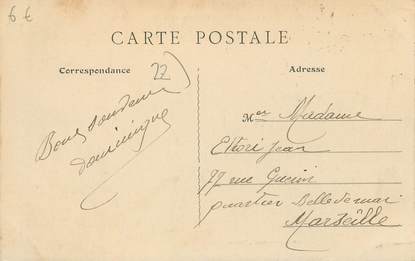 6 €
CARTE POSTALE
Correspondance
22
Adresse
Bons
dominique
M Madame
Ettori Jean
77 rue
quartier Belle de mai
Marseille